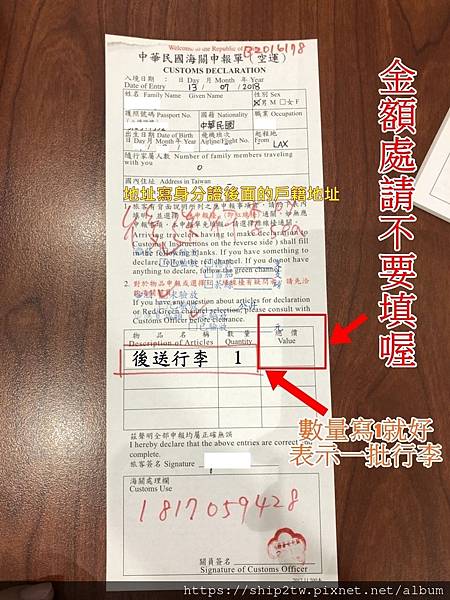 Welcome to the Republic of
B2016178
中華民國海關申報單(空運)
CUSTOMS DECLARATION
入境日期 : 日 Day 月 Month 年 Year
Date of Entry 13 / 07 / 2018
姓名 Family Name Given Name
性別 Sex
男 M □女 F
護照號碼 Passport No.
國籍 Nationality
中華民國
職業 Occupation
出生日期 Date of Birth
日 Day 月 Month 年 Year
飛機班次
Airline/Flight No.
起程地
From LAX
隨行家屬人數 Number of family members traveling
with you
0
國內住址 Address in Taiwan
地址寫身分證後面的戶籍地址
Arriving travelers having to make declaration
Customs Instructions on the reverse side) shall fill
in the following blanks. If you have something to
declare, follow the red channel. If you do not have
anything to declare, follow the green channel.
If you have any question about articles for declaration
or Red/Green channel selection, please consult with
Customs Officer before clearance.
物品名稱
Description of Articles
數量
Quantity
總價
Value
後送行李 1
金額處請不要填喔
數量寫1就好
表示一批行李
茲聲明全部申報均屬正確無誤
I hereby declare that the above entries are correct and
complete.
旅客簽名 Signature
海關處理欄
Customs Use
1817059428
關員簽名
Signature of Customs Officer
https://ship2tw.pixnet.net/album